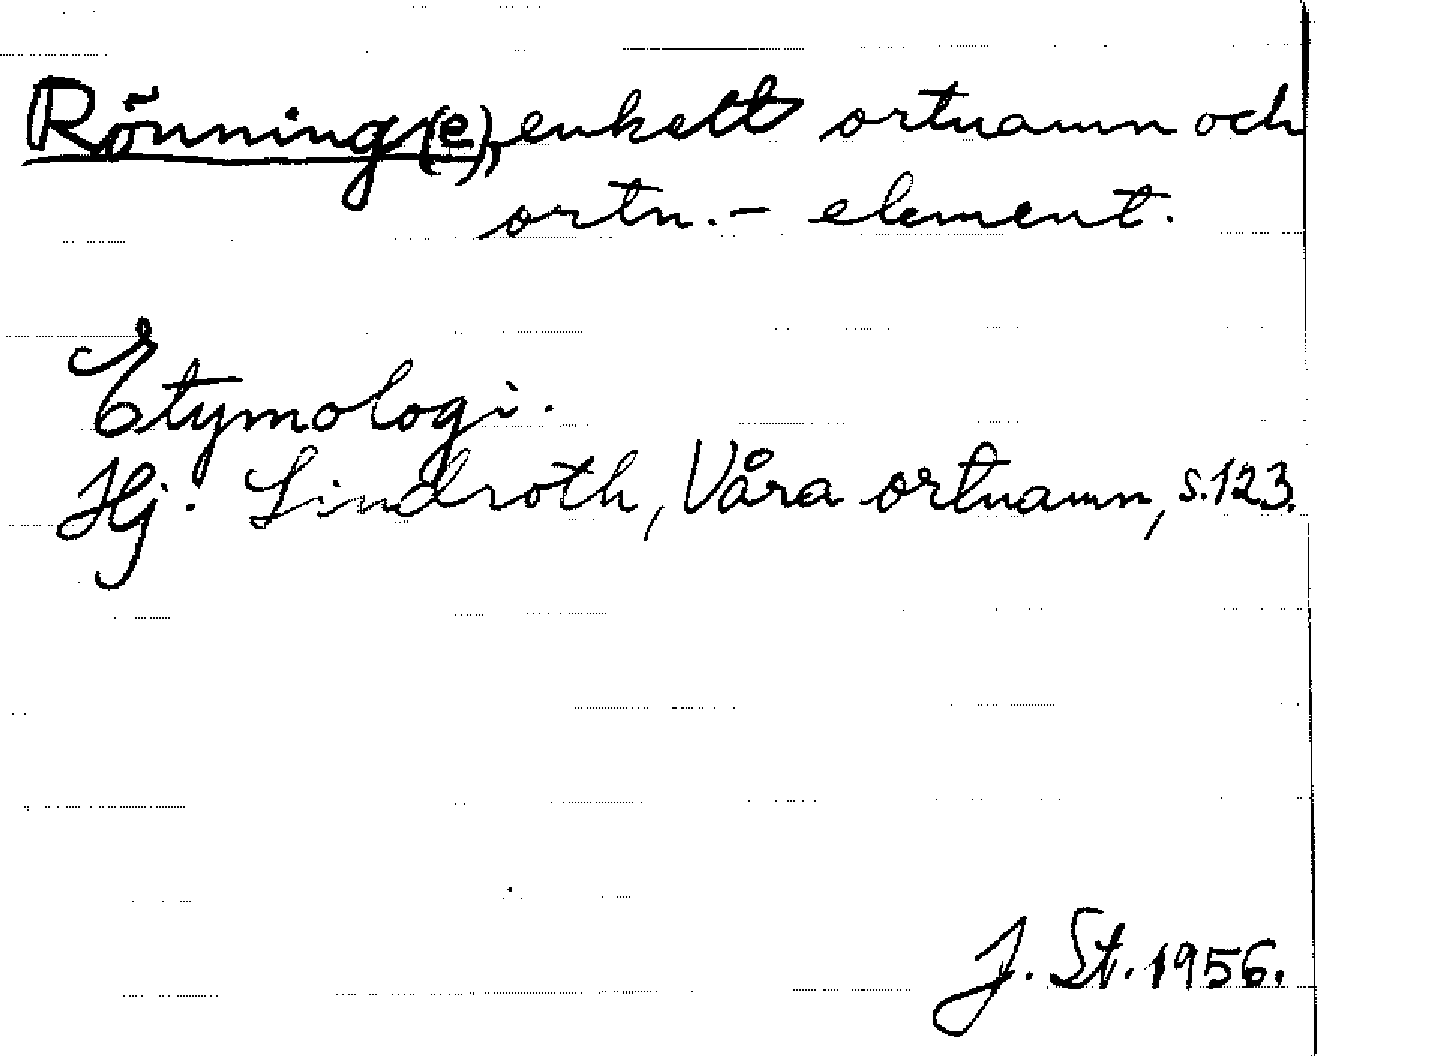 Rönning(e), enkelt ortnamn och
ortn.- element.
Etymologi.
Hj. Lindroth, Våra ortnamn, s.123.
J. St. 1956.